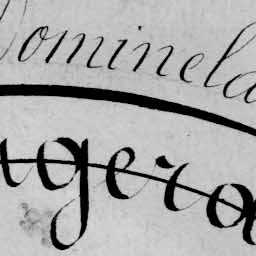 Dominela
agera